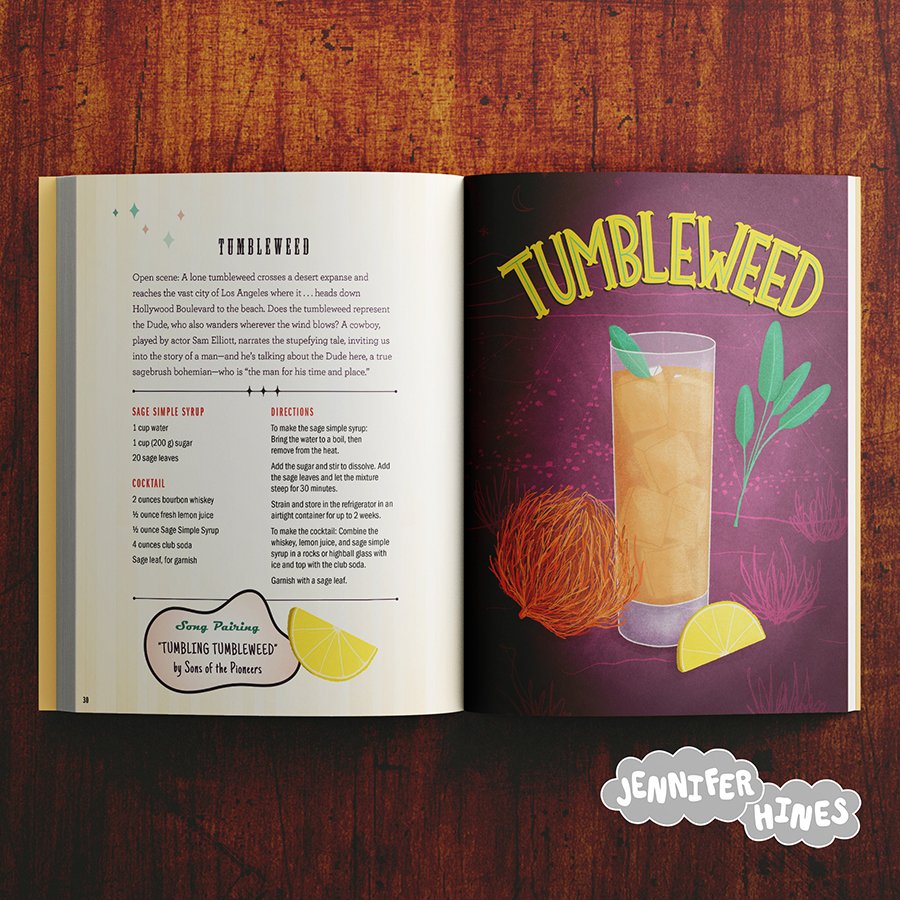 TUMBLEWEED
Open scene: A lone tumbleweed crosses a desert expanse and
reaches the vast city of Los Angeles where it . . . heads down
Hollywood Boulevard to the beach. Does the tumbleweed represent
the Dude, who also wanders wherever the wind blows? A cowboy,
played by actor Sam Elliott, narrates the stupefying tale, inviting us
into the story of a man—and he's talking about the Dude here, a true
sagebrush bohemian—who is “the man for his time and place.”
SAGE SIMPLE SYRUP
1 cup water
1 cup (200 g) sugar
20 sage leaves
COCKTAIL
2 ounces bourbon whiskey
½ ounce fresh lemon juice
½ ounce Sage Simple Syrup
4 ounces club soda
Sage leaf, for garnish
DIRECTIONS
To make the sage simple syrup:
Bring the water to a boil, then
remove from the heat.
Add the sugar and stir to dissolve. Add
the sage leaves and let the mixture
steep for 30 minutes.
Strain and store in the refrigerator in an
airtight container for up to 2 weeks.
To make the cocktail: Combine the
whiskey, lemon juice, and sage simple
syrup in a rocks or highball glass with
ice and top with the club soda.
Garnish with a sage leaf.
Song Pairing
"TUMBLING TUMBLEWEED"
by Sons of the Pioneers
30
TUMBLEWEED
JENNIFER
HINES